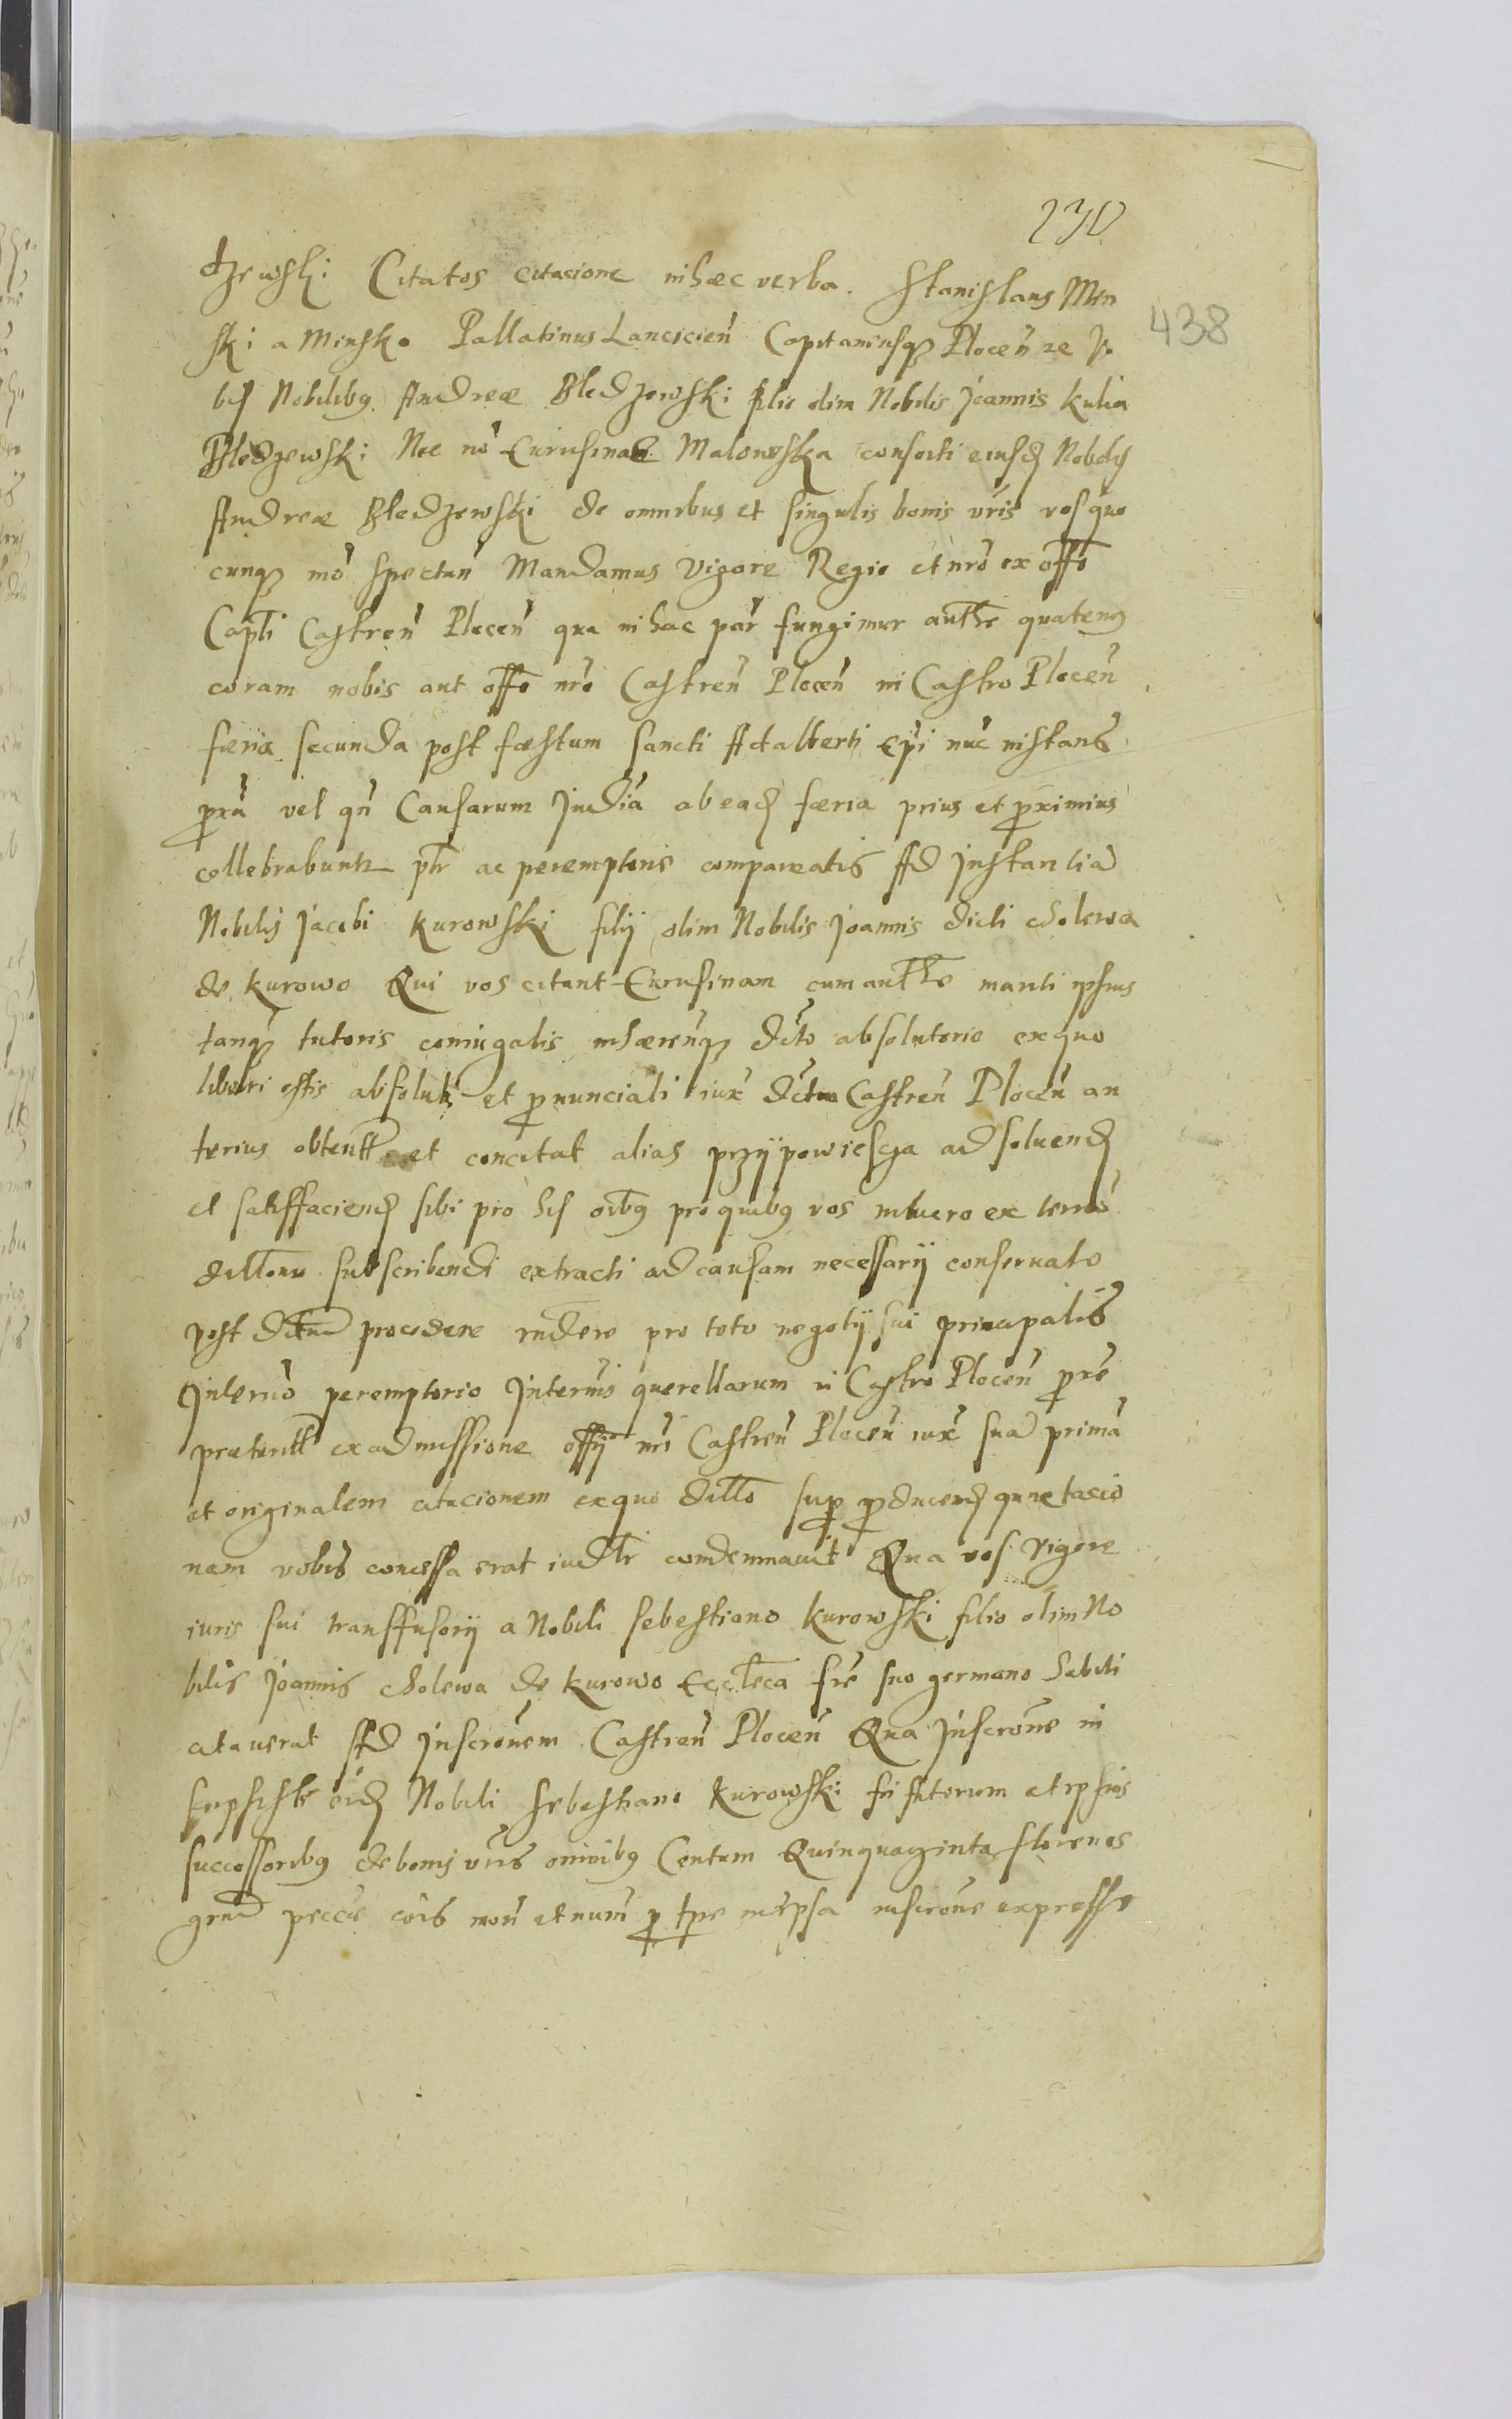 230
438
dzewski Citatos citacione in haec verba. Stanislaus Min
ski a Minsko Pallatinus Lancicien̄ Capitaneusq̃ Plocen̄ re Vo
bis Nobilibus Andreae Bledzewski filio olim Nobilis Joannis Kulia
Bledzewski Nec nō Eurusinae Malonska consorti eiusd̃ Nobilis
Andreae Bledzewski de omnibus et singulis bonis vr̄is vos quo
cunq̃ mō spectan̄ Mandamus Vigore Regio et nr̄o ex offō
Captī Castren̄ Plocen̄ qua in hac par̄ fungimur autħe quatenus
coram nobis aut offō nr̄o Castren̄ Plocen̄ in Castro Plocen̄
faeria secunda post faestum Sancti Adalberti Epī nūc instans
prxā vel qn̄ Causarum Judīa ab ead̃ faeria prius et proximius
collebrabuntr ptr̄ ac peremptorie compareatis Ad Instantiā
Nobilis Jacobi Kurowski filij olim Nobilis Joannis dicti cholewa
de Kurowo Qui vos citant Eurusinam cum autħe mariti ipsius
tanq̃ tutoris coniugalis inhaeren̄q̃ dcr̄to absolutorio ex quo
liberi estis absoluti et pronunciati iux̄ dcr̄tū Castren̄ Plocen̄ an
terius obtentū et concitat alias przypowiescza ad soluend̃
et satisfaciend̃ sibi pro his oībus pro quibus vos intuero ex termō
dillōnū subscribendi extracti ad causam necessarij conseruato
post dcr̄tū procedere rn̄dere pro toto negotij sui principalis
In termō peremptorio In termīs querellarum in Castro Plocen̄ prxe
praeteritī ex admissione offij nrī Castren̄ Plocen̄ iux̄ suā primā
et originalem citacionem ex quo dillō sup̱ producend̃ quietacio
nem vobis concessa erat iudtr̄ condemnauit Qua vos Vigore
iuris sui transfusorij a Nobili Sebestiano Kurowski filio olim No
bilis Joannis cholewa de Kurowo fr̄e suo germano habiti
citauerat Ad Inscrōnem Castren̄ Plocen̄ Qua Inscrōne in
scripsistis eid̃ Nobili Sebestiano Kurowski et ipsius
successoribus de bonis vr̄is omnibus Centum Quinquaginta florenos
mon̄ et num̄ p̱ tp̱e in ipsa inscrōne expresse